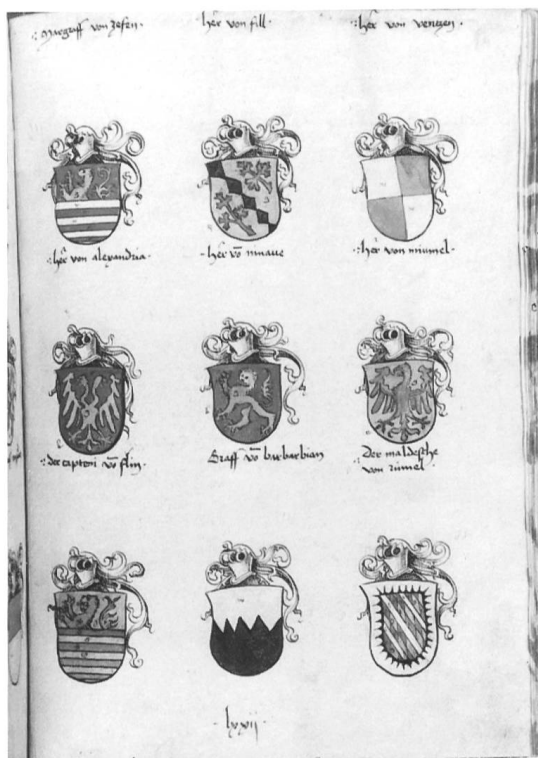 ·:Margraff von zesen·
her von fill·
·:her von ventzen·
·:her von alexandria·
·her vō ninaue
·:her von mummel·
·:der captoni vō flin·
Graff vō barbarbian
·:Der maldesche
von rimel·
·lxxij·